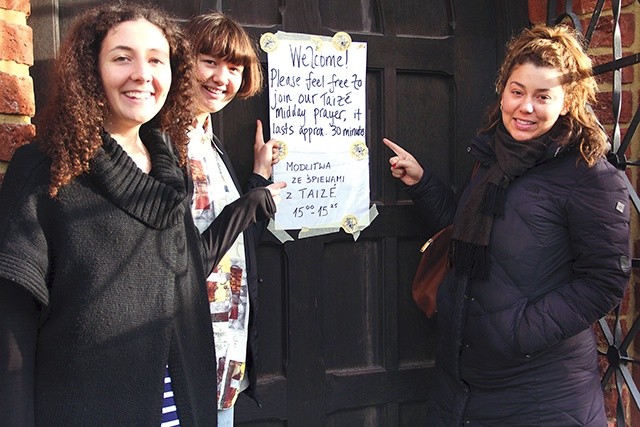 Welcome!
Please feel free to
join our TAIZÉ
midday prayer, it
lasts approx. 30 minutes
MODLITWA
ZE ŚPIEWAMI
Z TAIZÉ
15⁰⁰-15²⁵